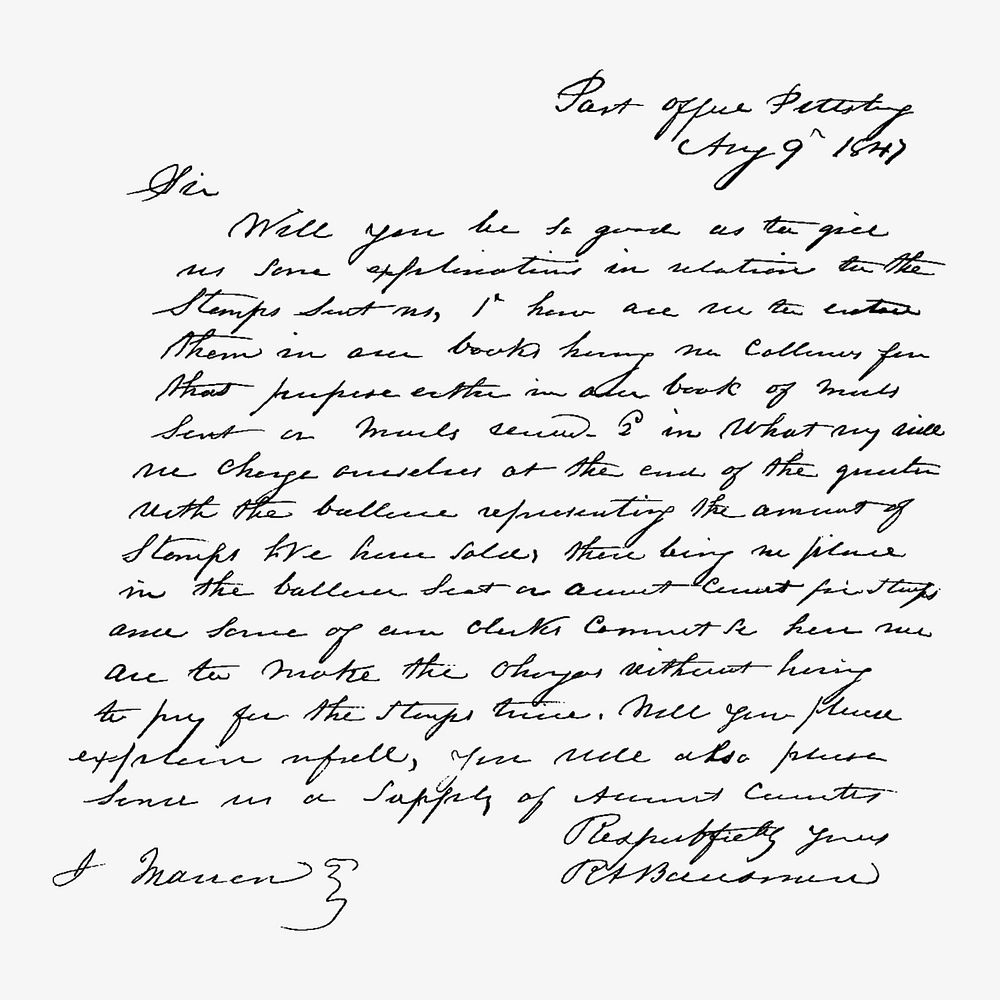 Post office Pittsburg
Aug 9th 1847
Sir
Will you be so good as to give
us some explinations in relation to the
Stamps Sent us, 1st how are we to
them in our books having no Collums for
that purpose either in our book of mails
Sent or Mails 2 in What way will
we Charge ourselves at the end of the quarter
with the ballence representing the amount of
Stamps We have Sold, there being no place
in the ballence Sheet or account Current for Stamps
and Some of our Clerks how we
are to make the Charges without having
to pay for the Stamps twice. Will you please
explain You will also please
Send us a Supply of Account Currents
Respectfully yours
R H
J Marron